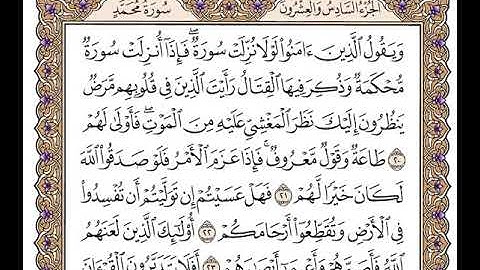 الجزء السادس والعشرون سورة محمد
وَيَقُولُ الَّذِينَ ءَامَنُوا لَوْلَا نُزِّلَتْ سُورَةٌ ۖ فَإِذَا أُنزِلَتْ سُورَةٌ
مُّحْكَمَةٌ وَذُكِرَ فِيهَا الْقِتَالُ رَأَيْتَ الَّذِينَ فِي قُلُوبِهِم مَّرَضٌ
يَنظُرُونَ إِلَيْكَ نَظَرَ الْمَغْشِيِّ عَلَيْهِ مِنَ الْمَوْتِ ۖ فَأَوْلَىٰ لَهُمْ
٢٠ طَاعَةٌ وَقَوْلٌ مَّعْرُوفٌ ۚ فَإِذَا عَزَمَ الْأَمْرُ فَلَوْ صَدَقُوا اللَّهَ
لَكَانَ خَيْرًا لَّهُمْ ٢١ فَهَلْ عَسَيْتُمْ إِن تَوَلَّيْتُمْ أَن تُفْسِدُوا
فِي الْأَرْضِ وَتُقَطِّعُوا أَرْحَامَكُمْ ٢٢ أُولَٰئِكَ الَّذِينَ لَعَنَهُمُ
اللَّهُ فَأَصَمَّهُمْ وَأَعْمَىٰ أَبْصَارَهُمْ ٢٣ أَفَلَا يَتَدَبَّرُونَ الْقُرْءَانَ